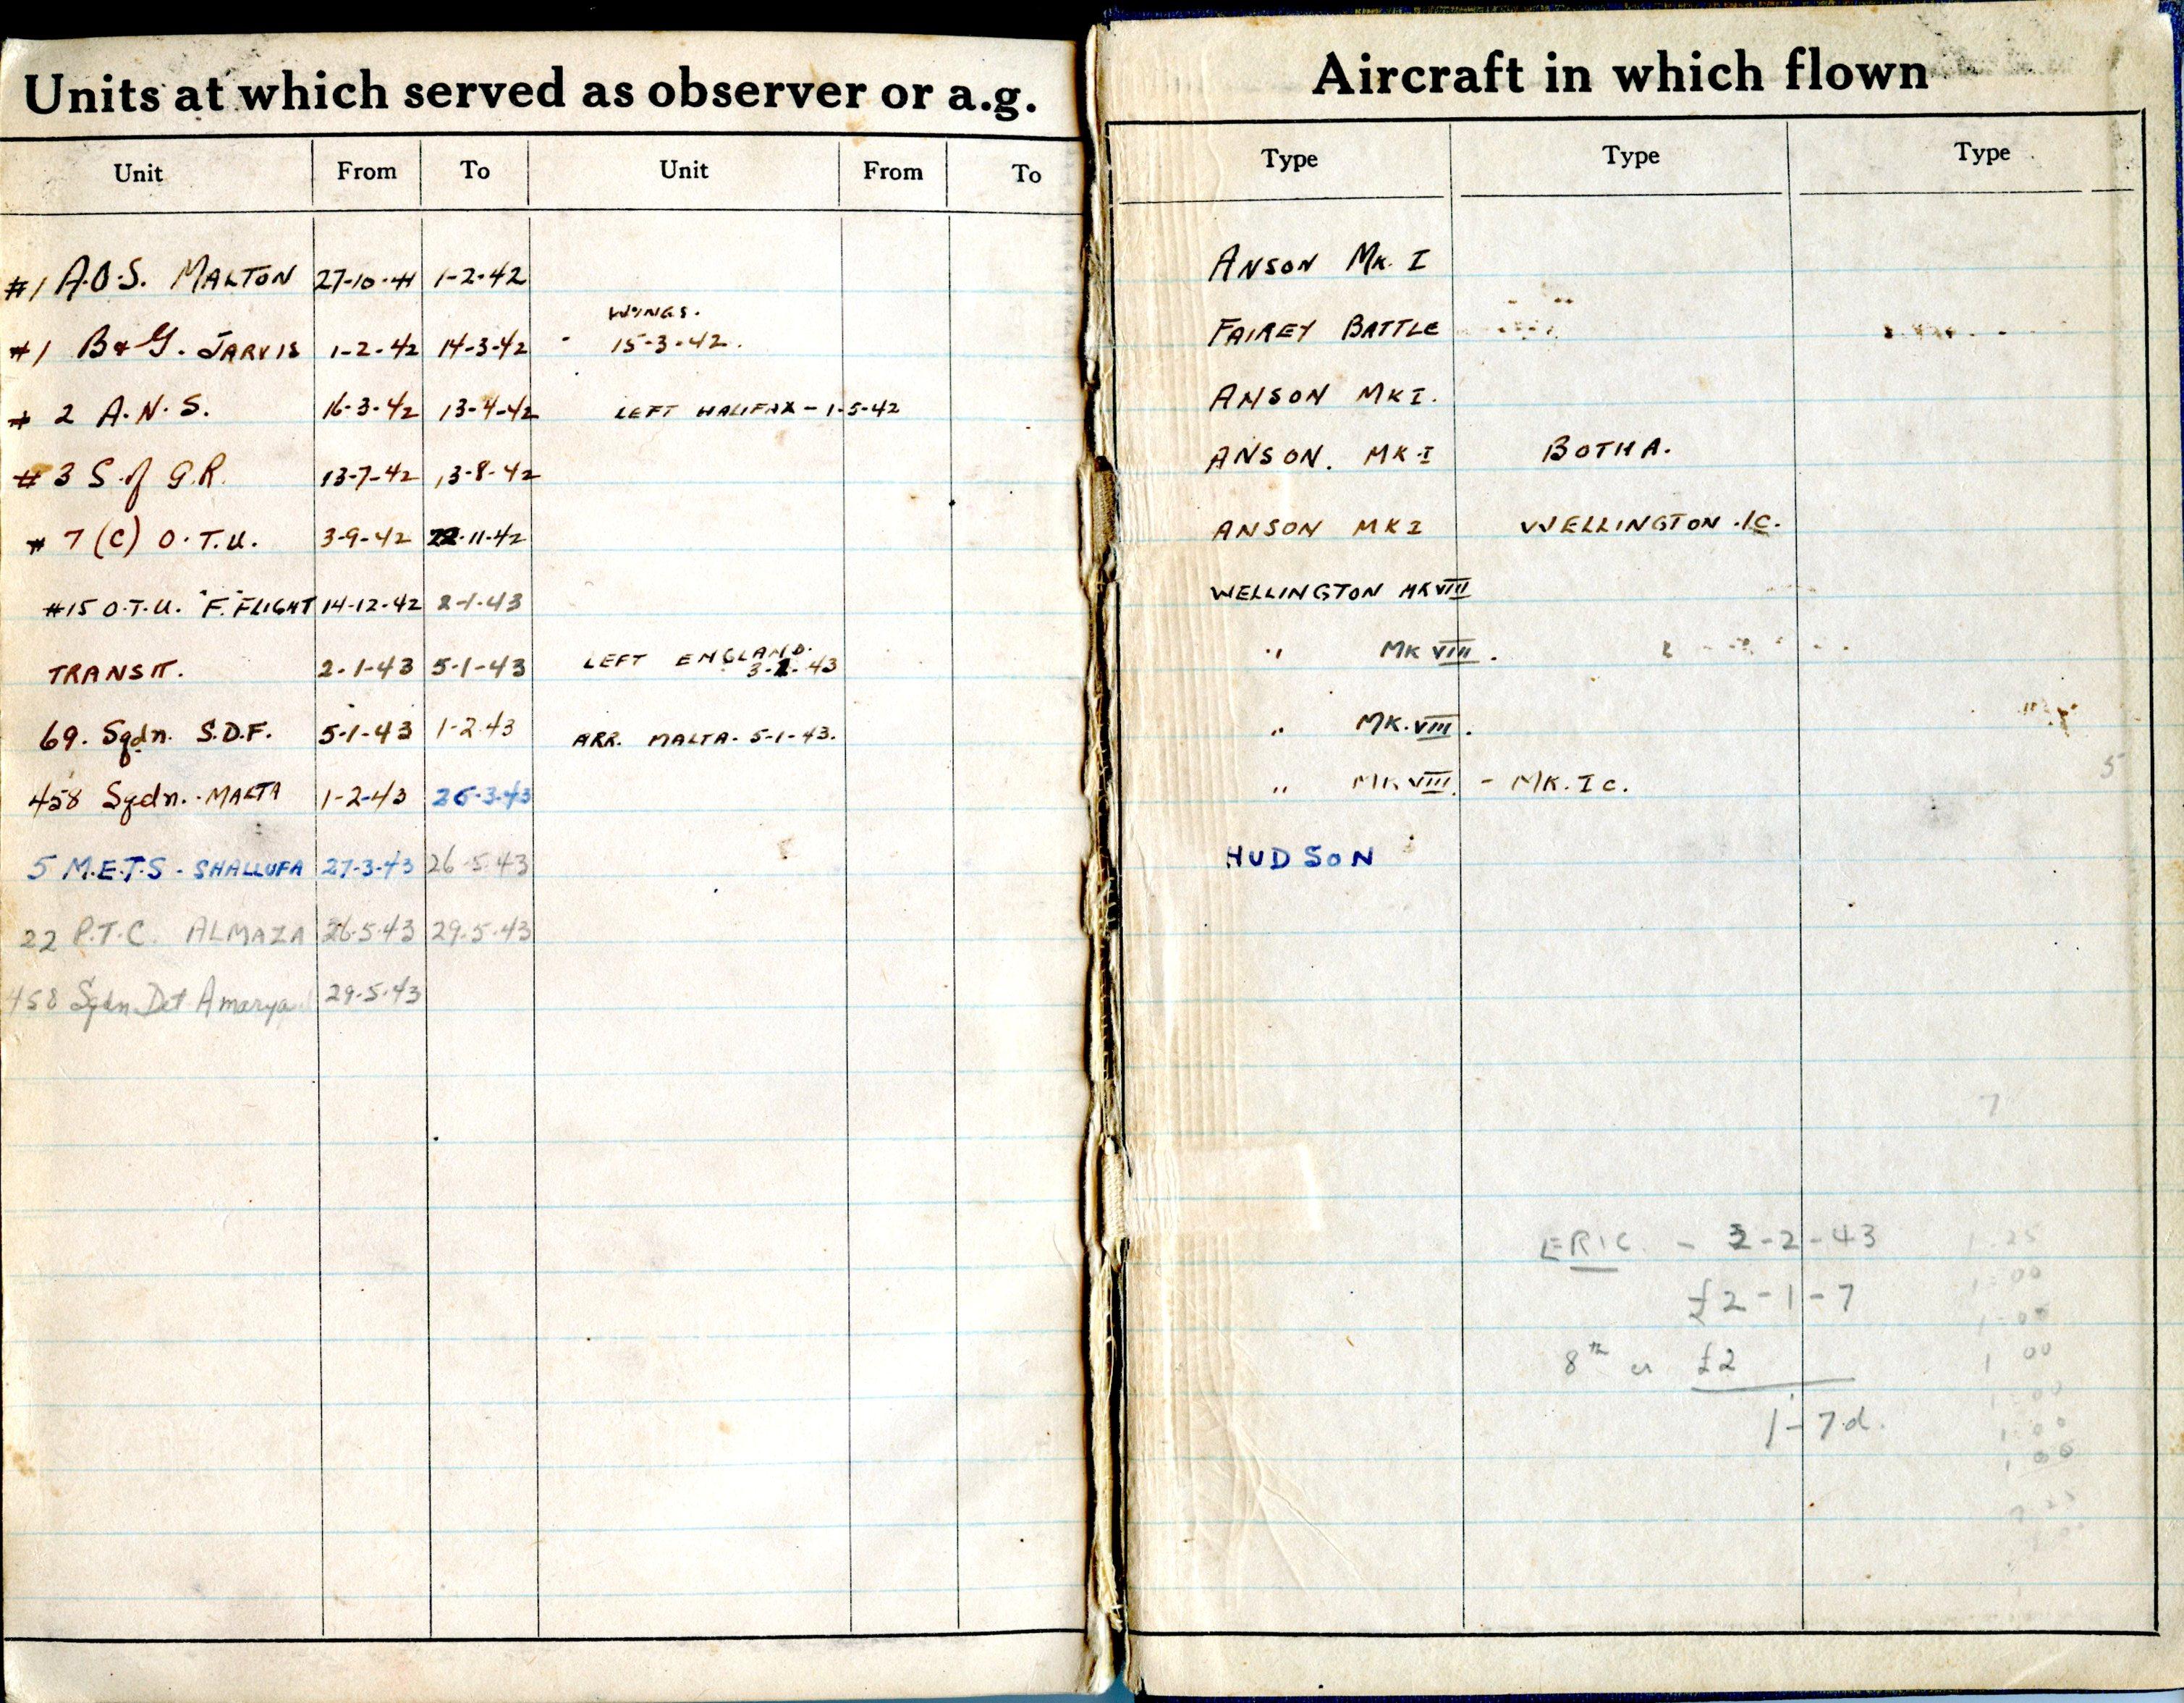 Units at which served as observer or a.g.
Unit From To Unit From To
#1 A.O.S. MALTON 27-10-41 1-2-42
WINGS.
#1 B & G. JARVIS 1-2-42 14-3-42 15-3-42.
# 2 A.N.S. 16-3-42 13-4-42 LEFT HALIFAX - 1-5-42
# 3 S of G.R. 13-7-42 13-8-42
# 7 (C) O.T.U. 3-9-42 22-11-42
#15 O.T.U. "F." FLIGHT 14-12-42 2-1-43
TRANSIT. 2-1-43 5-1-43 LEFT ENGLAND.
3-1-43
69. Sqdn. S.D.F. 5-1-43 1-2-43 ARR. MALTA. 5-1-43.
458 Sqdn. - MALTA 1-2-43 26-3-43
5 M.E.T.S - SHALLUFA 27-3-43 26-5-43
22 P.T.C. ALMAZA 26-5-43 29-5-43
458 Sqdn Det Amarya 29-5-43
Aircraft in which flown
Type Type Type
ANSON MK. I
FAIREY BATTLE
ANSON MK I.
ANSON. MK I BOTHA.
ANSON MK I WELLINGTON .IC.
WELLINGTON MK VIII
" MK VIII.
" MK. VIII.
" MK VIII. - MK. I C.
5
HUDSON
7
ERIC - 2-2-43 1 25
£2-1-7 1-00
1-00
8th £2 1 00
1-00
1-7d. 1-00
1 00